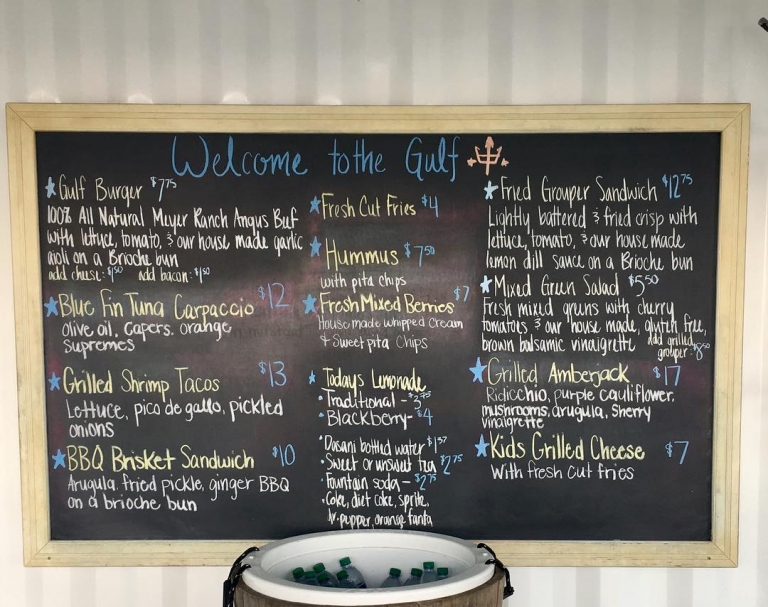 Welcome to the Gulf
Gulf Burger $7.75
100% All Natural Meyer Ranch Angus Beef
with lettuce, tomato, & our house made garlic
aioli on a Brioche bun
add cheese: $1.50 add bacon: $1.50
Blue Fin Tuna Carpaccio $12
olive oil, capers, orange
supremes
Grilled Shrimp Tacos $13
Lettuce, pico de gallo, pickled
onions
BBQ Brisket Sandwich $10
Arugula, fried pickle, ginger BBQ
on a brioche bun
Fresh Cut Fries $4
Hummus $7.50
with pita chips
Fresh Mixed Berries $7
House made whipped cream
& Sweet pita chips
Todays Lemonade
• Traditional -
• Blackberry - $4
• Dasani bottled water
• Sweet or unsweet tea $2.75
• Fountain soda - $2.75
• Coke, diet coke, sprite,
dr. pepper, orange fanta
Fried Grouper Sandwich $12.75
Lightly battered & fried crisp with
lettuce, tomato, & our house made
lemon dill sauce on a Brioche bun
Mixed Green Salad $5.50
Fresh mixed greens with cherry
tomatoes & our house made, gluten free,
brown balsamic vinaigrette add grilled
grouper: $8.50
Grilled Amberjack $17
Ridicchio, purple cauliflower,
mushrooms, arugula, Sherry
vinaigrette
Kids Grilled Cheese $7
With fresh cut fries